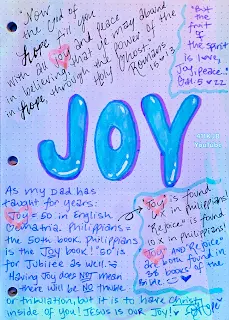 "Now
the God of
hope fill you
with all joy and peace
in believing, that ye may abound
in hope, through the power of the
Holy Ghost."
Romans
15:13
"But
the fruit
of
the spirit
is love,
Joy, peace..."
Gal. 5:22
JOY
YouTube
As my Dad has
taught for years:
Joy = 50 in English
Gematria. Philippians =
the 50th book. Philippians
is the Joy book! "50" is
for Jubilee as well.
Having Joy does NOT mean
there will be NO trouble
or tribulation, but it is to have Christ
inside of you! JESUS is our Joy!
"Joy" is found
6x in Philippians!
"Rejoice" is found
10x in Philippians!
"Joy" AND "Rejoice"
are both found in
36 books of the
Bible.